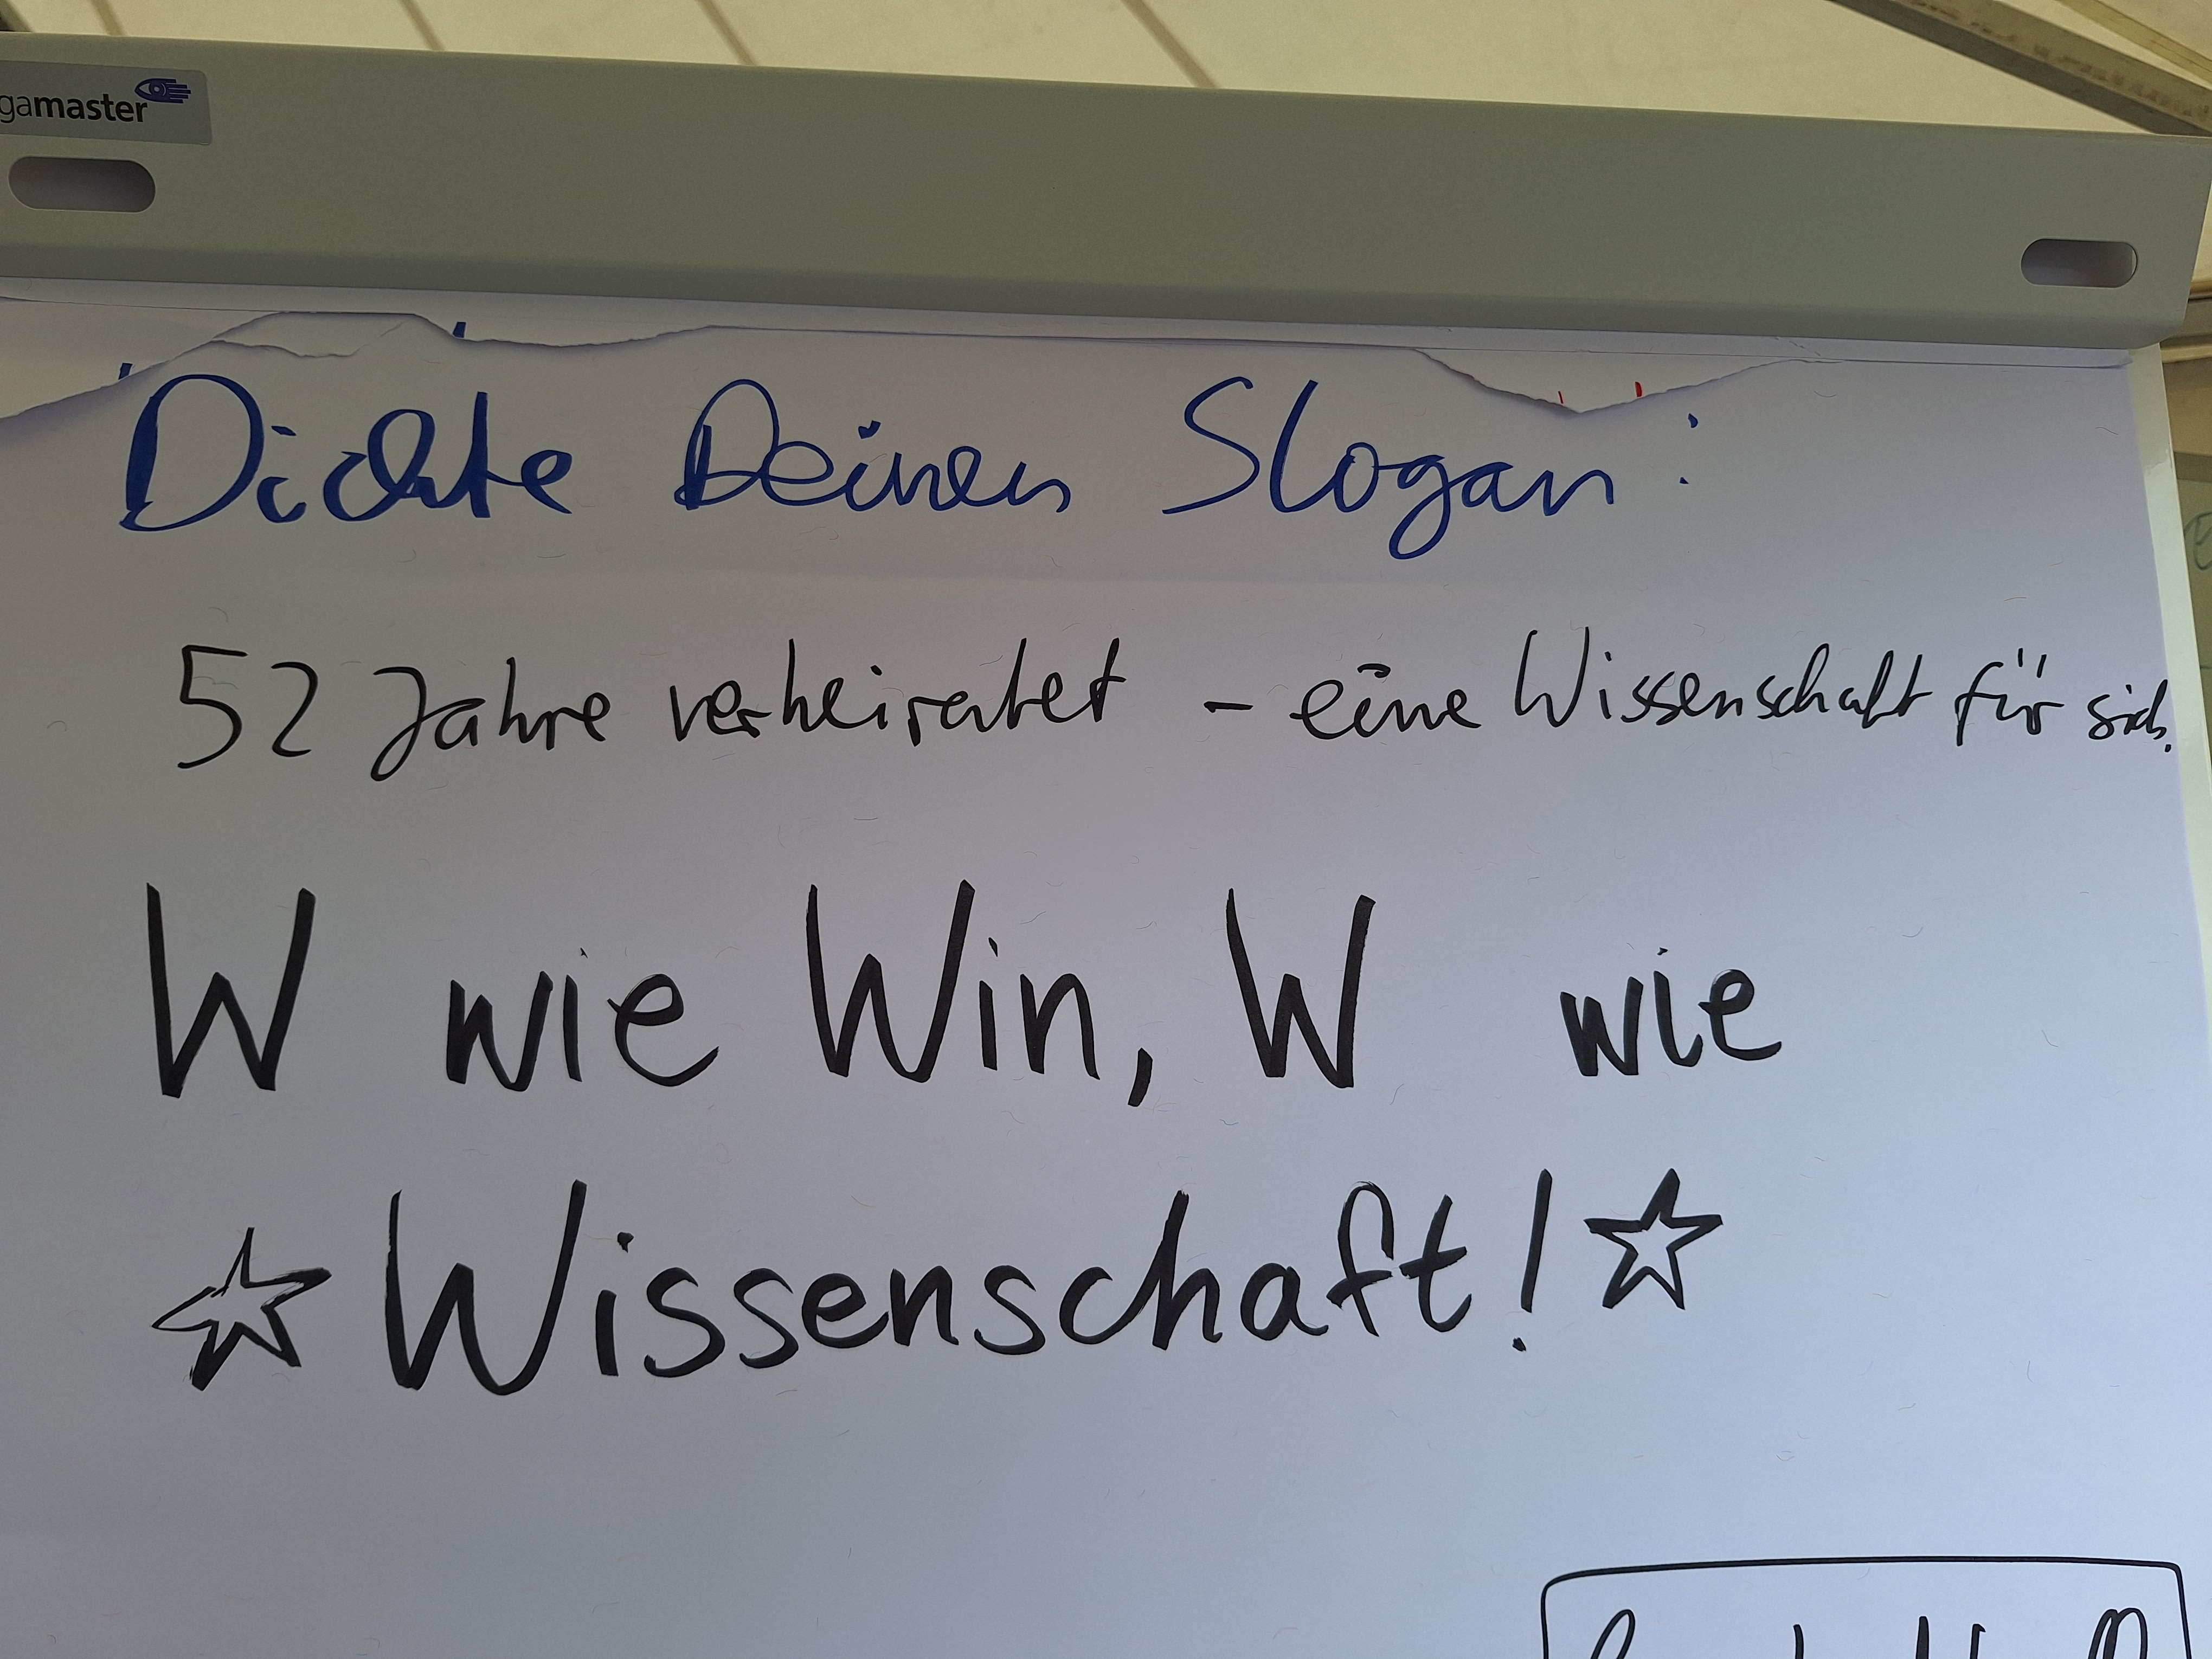 gamaster
Dichte Deinen Slogan:
52 Jahre verheiratet - eine Wissenschaft für sich.
W wie Win, W wie
Wissenschaft!